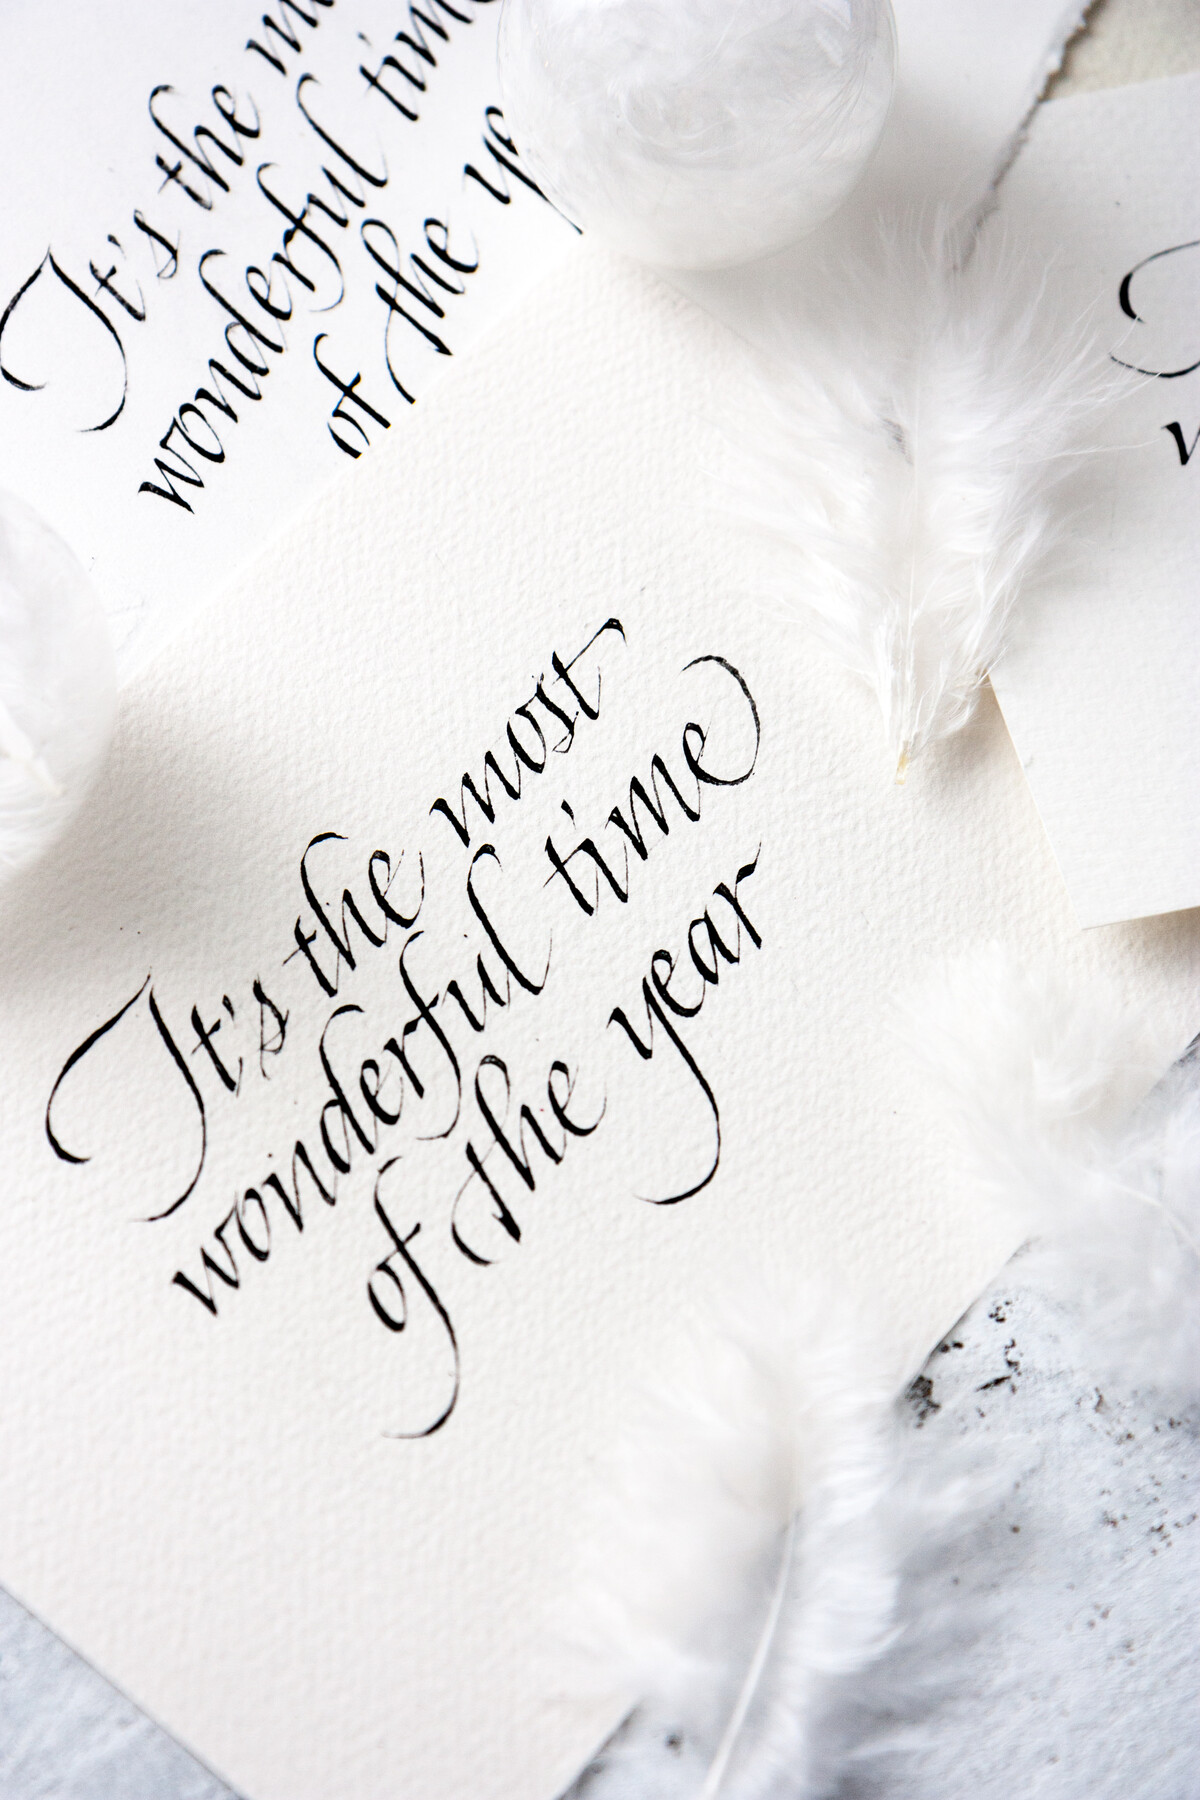 It's the
wonderful time
of the
It's the most
wonderful time
of the year